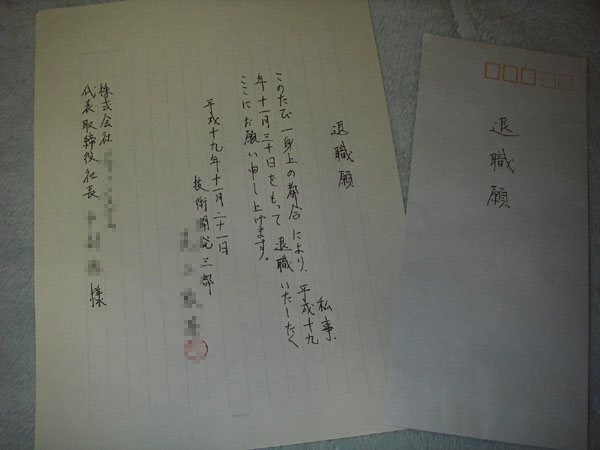 退職願
私事、
このたび一身上の都合により、平成十九
年十一月三十日をもって退職いたしたく
ここにお願い申し上げます。
平成十九年十一月二十一日
技術開発三部
株式会社
代表取締役社長 様
退職願